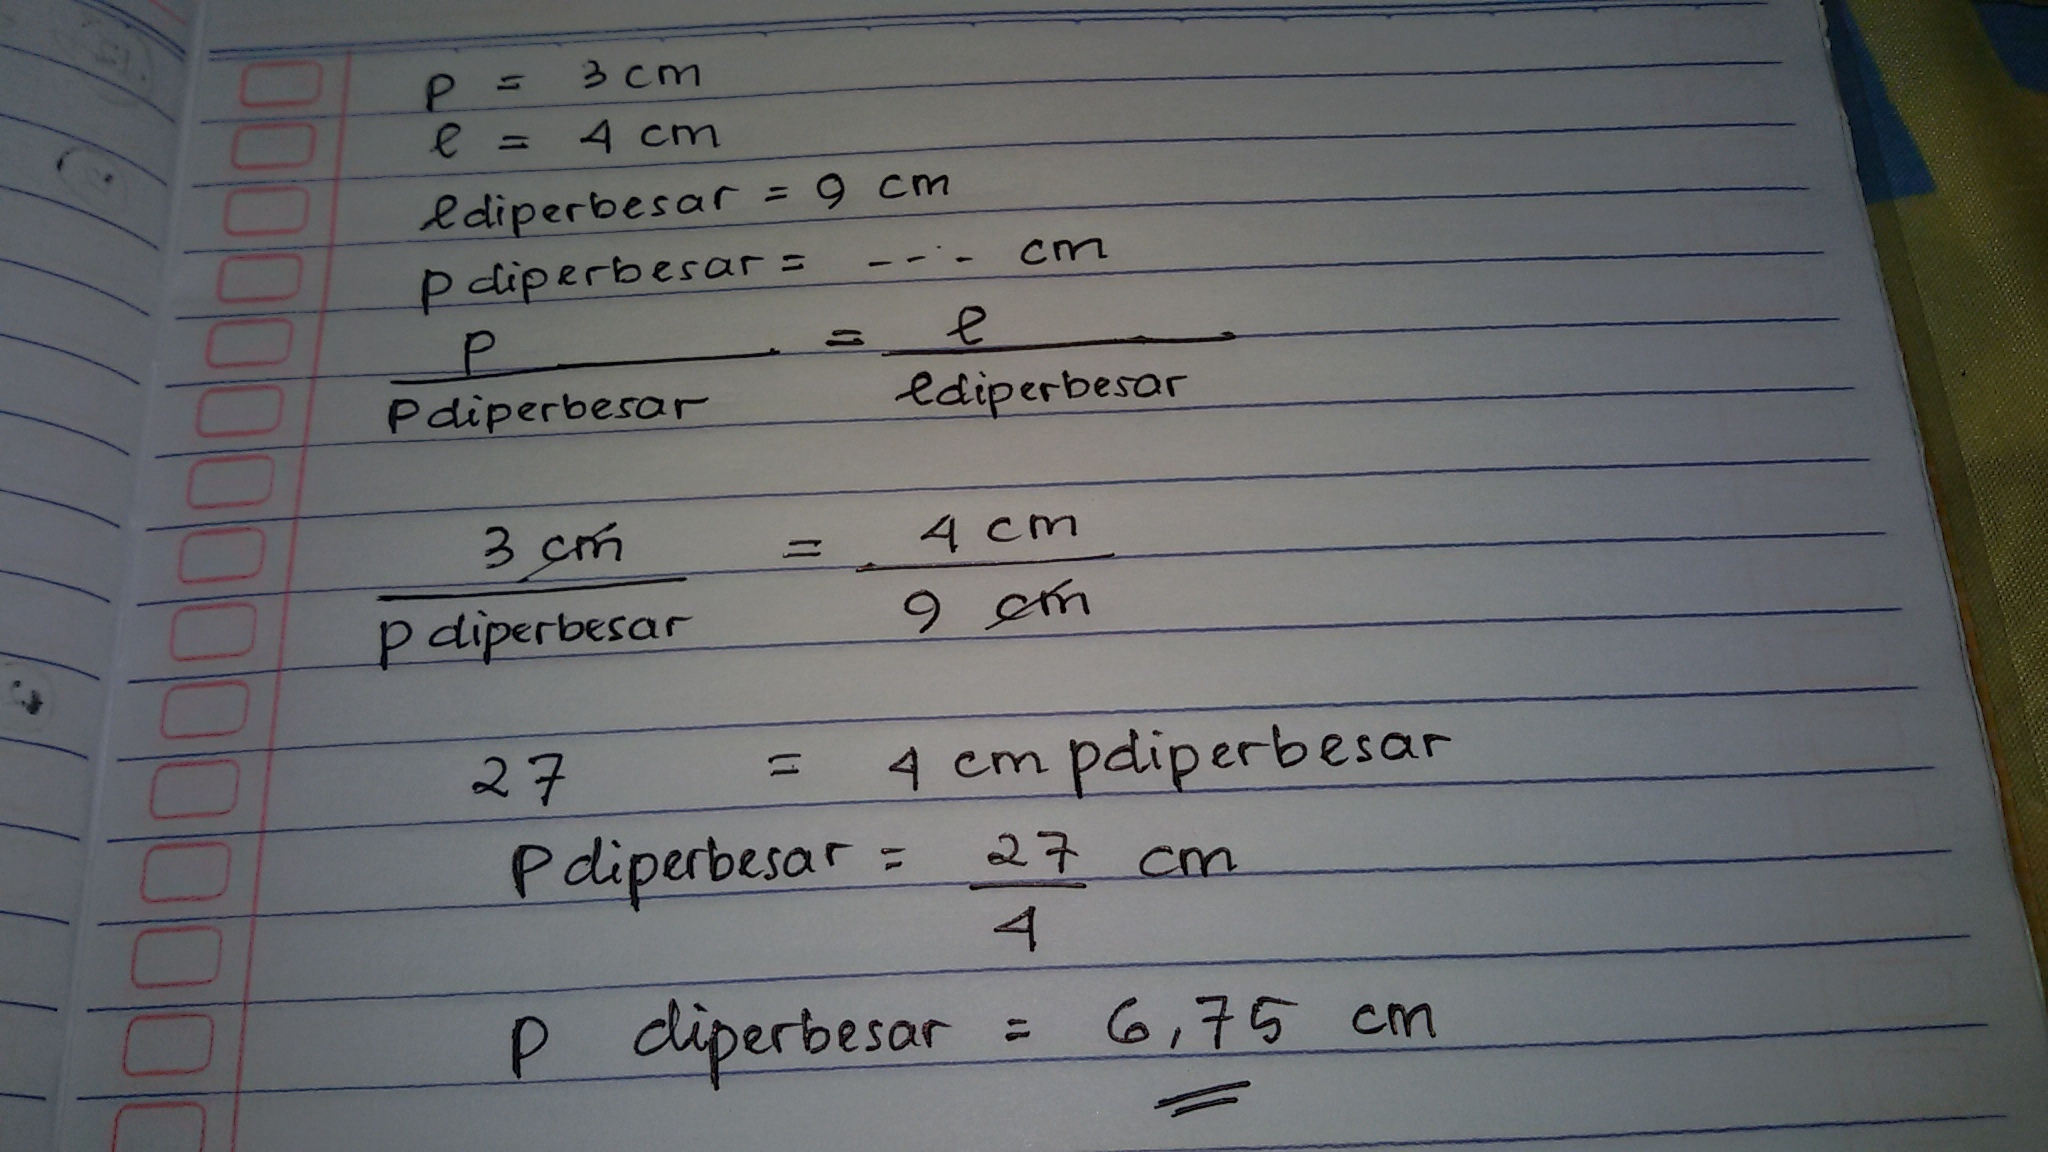 p = 3 cm
l = 4 cm
l diperbesar = 9 cm
p diperbesar = ---- cm
p = l
p diperbesar l diperbesar
3 cm = 4 cm
p diperbesar 9 cm
27 = 4 cm p diperbesar
p diperbesar = 27 cm
4
p diperbesar = 6,75 cm